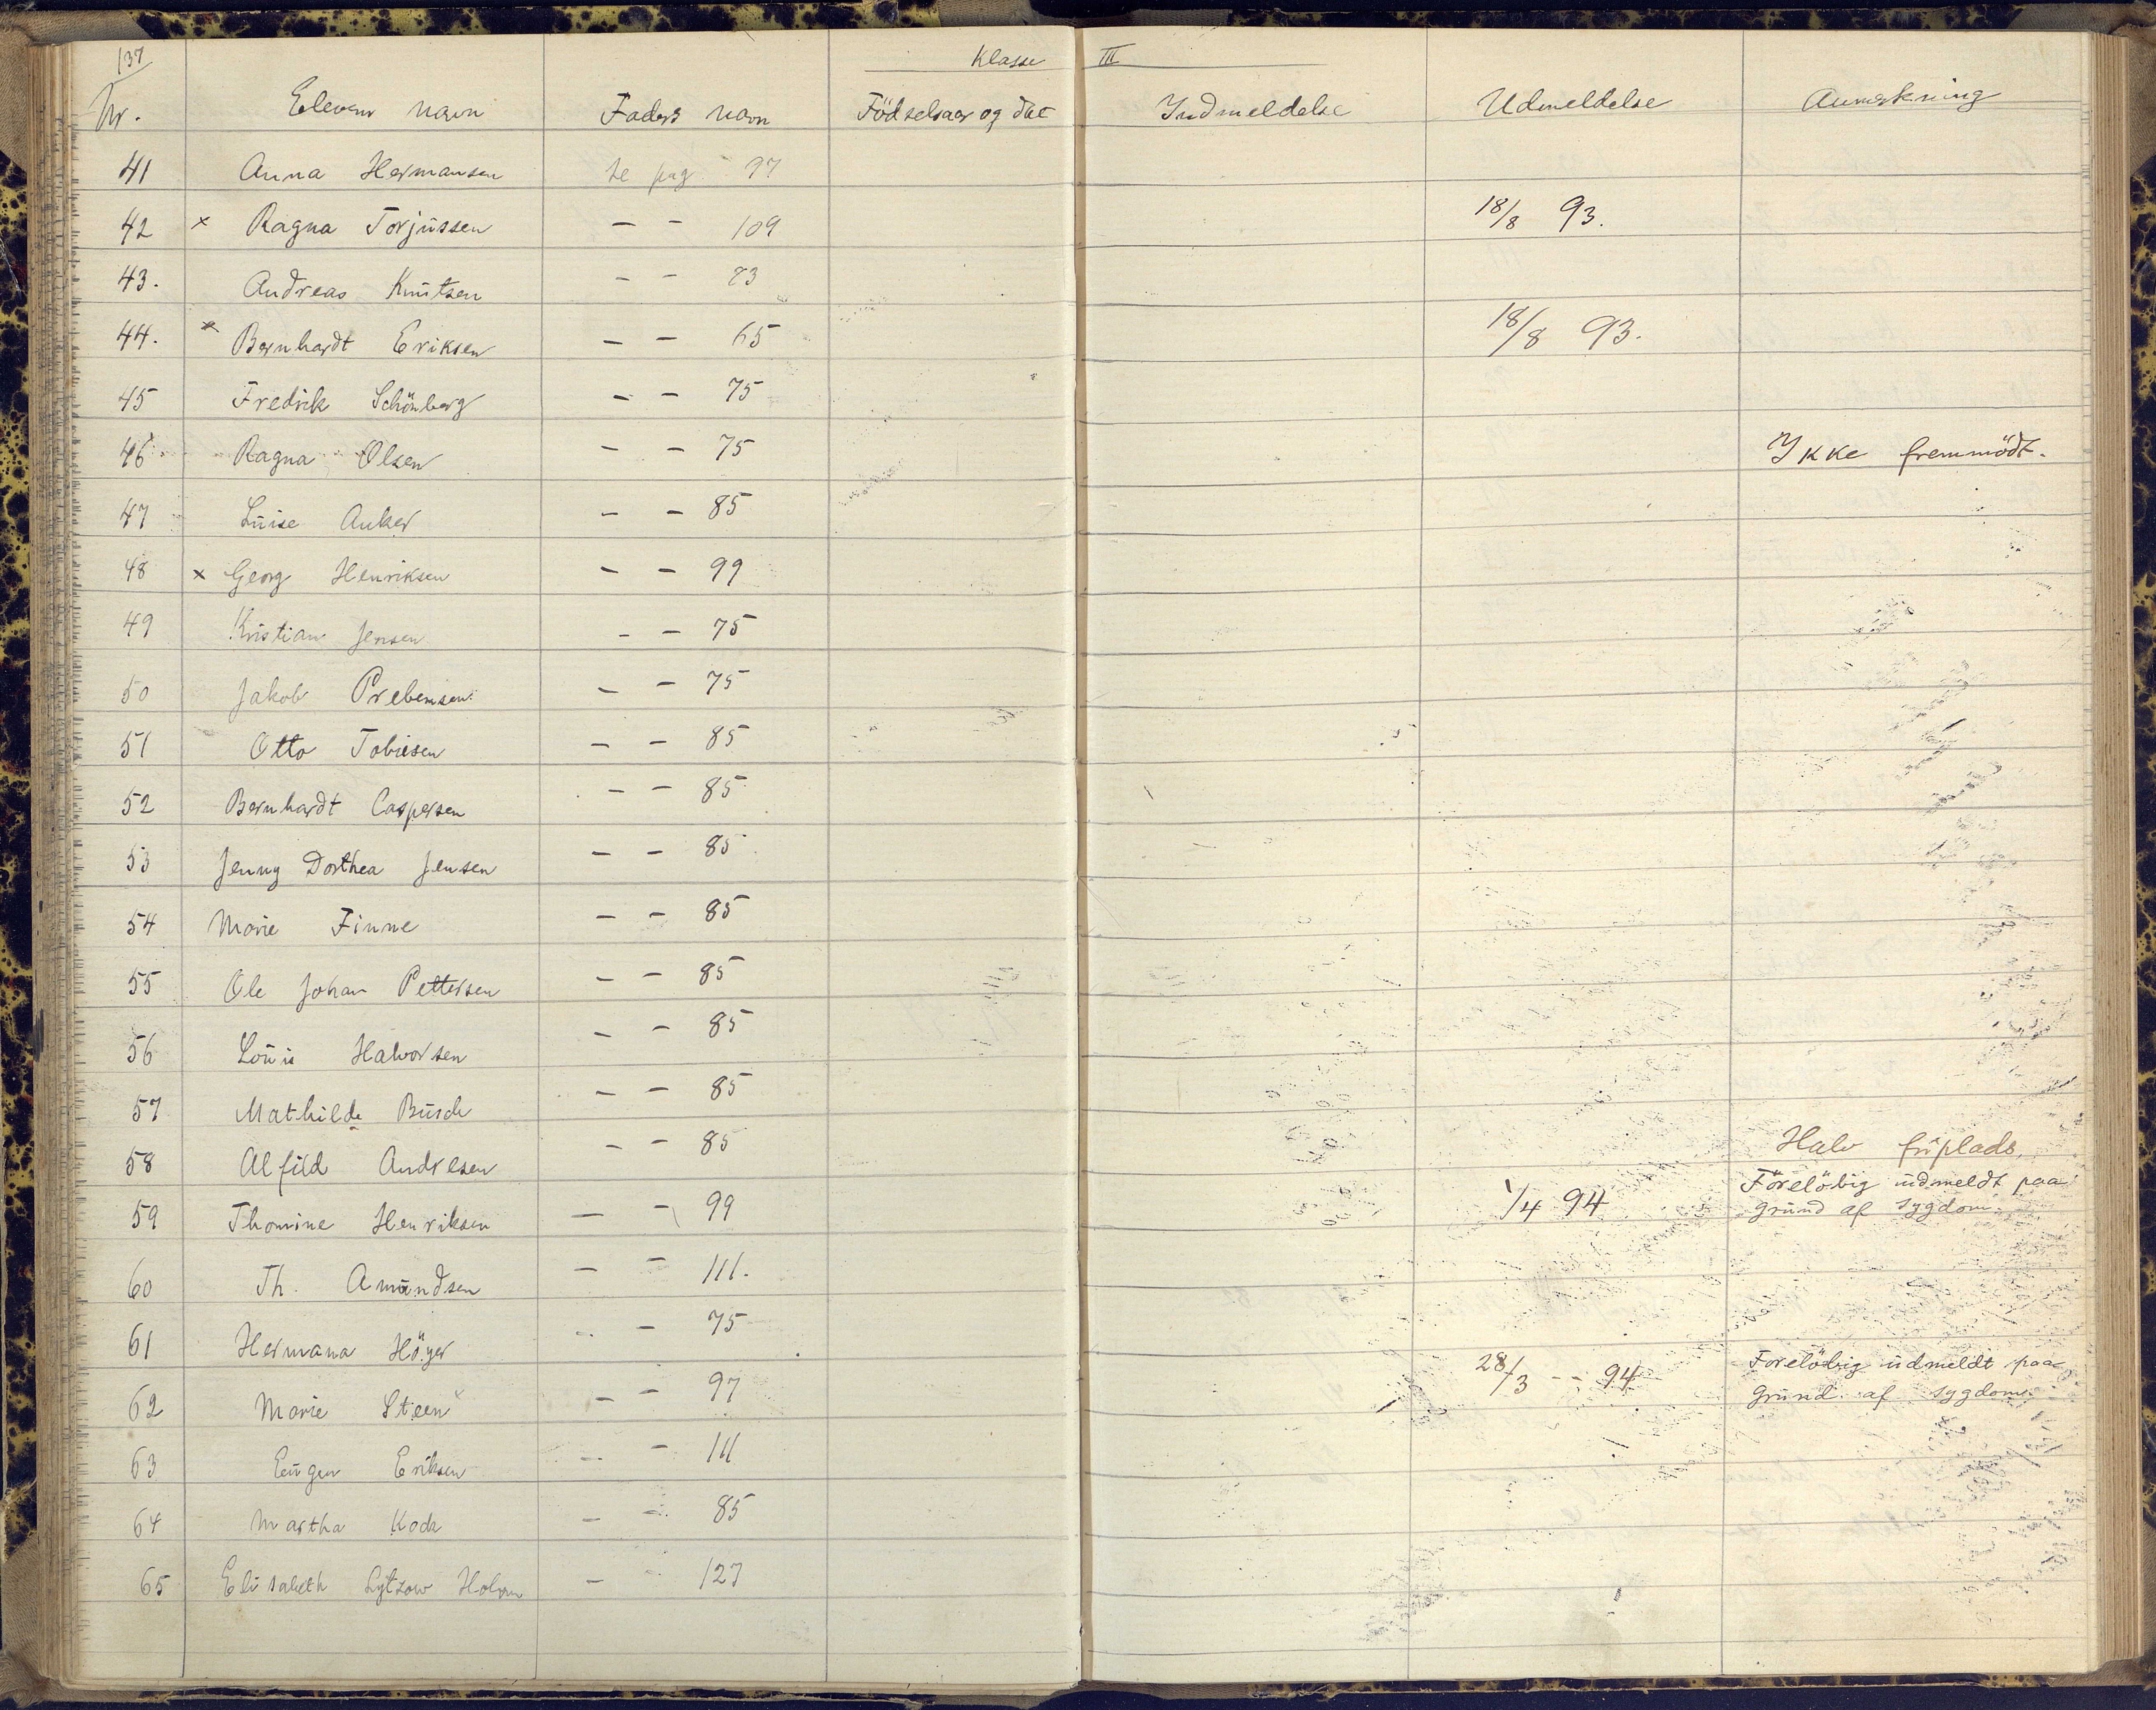 137
Klasse III
Nr. Elevens navn Faders navn Födselsaar og dat Indmeldelse Udmeldelse Anmerkning
41 Anna Hermansen se pag 97
42 x Ragna Torjussen – – 109 18/8 93.
43. Andreas Knutsen – – 83
44. x Bernhardt Eriksen – – 65 18/8 93.
45 Fredrik Schönberg – – 75
46 Ragna Olsen – – 75 Ikke fremmödt.
47 Luise Anker – – 85
48 x Georg Henriksen – – 99
49 Kristian Jensen – – 75
50 Jakob Prebensen – – 75
51 Otto Tobiesen – – 85
52 Bernhardt Caspersen – – 85
53 Jenny Dorthea Jensen – – 85
54 Marie Finne – – 85
55 Ole Johan Pettersen – – 85
56 Louis Halvorsen – – 85
57 Mathilde Busch – – 85
58 Alfild Andresen – – 85 Halv friplads.
59 Thomine Henriksen – – 99 1/4 94 Föreløbig udmeldt paa
grund af sygdom.
60 Th. Amundsen – – 111.
61 Hermana Höyer – – 75
62 Marie Steen – – 97 28/3 – – 94 Foreløbig udmeldt paa
grund af sygdom.
63 Eugen Eriksen – – 111
64 Martha Koch – – 85
65 Elisabeth Lytzow Holm – 127